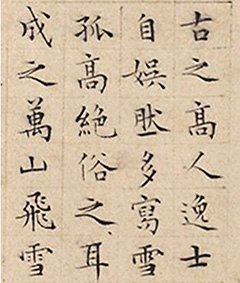 古之高人逸士
自娛肰多寫雪
孤高絶俗之耳
成之萬山飛雪